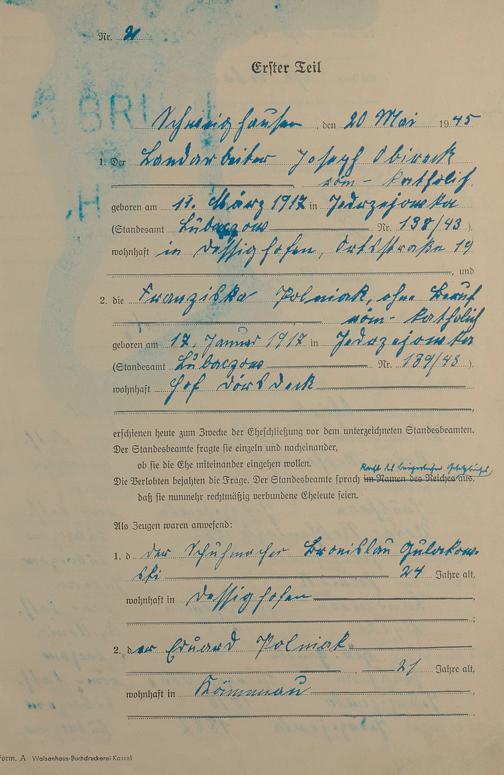 Nr. 2
Erster Teil
Schweighausen, den 20 Mai 1945
1. Der Landarbeiter Joseph Obirek
röm- katholisch
geboren am 11. März 1917 in Jedrzejowka
(Standesamt Lubaczow Nr. 138/43 ).
wohnhaft in Dessighofen, Ortsstraße 19
, und
2. die Franziska Polniak, ohne Beruf
röm- katholisch
geboren am 17. Januar 1917 in Jedrzejowka
(Standesamt Lubaczow Nr. 139/43 ).
wohnhaft Hof Dörsdeck
,
erschienen heute zum Zwecke der Eheschließung vor dem unterzeichneten Standesbeamten.
Der Standesbeamte fragte sie einzeln und nacheinander,
ob sie die Ehe miteinander eingehen wollen.
kraft des bürgerlichen Gesetzbuches
Die Verlobten bejahten die Frage. Der Standesbeamte sprach im Namen des Reiches aus,
daß sie nunmehr rechtmäßig verbundene Eheleute seien.
Als Zeugen waren anwesend:
1. der Schuhmacher Bronislau Gulakow-
ski 24 Jahre alt,
wohnhaft in Dessighofen
;
2. der Eduard Polniak
, 21 Jahre alt,
wohnhaft in Kömmenau
.
Form. A Waisenhaus-Buchdruckerei Kassel